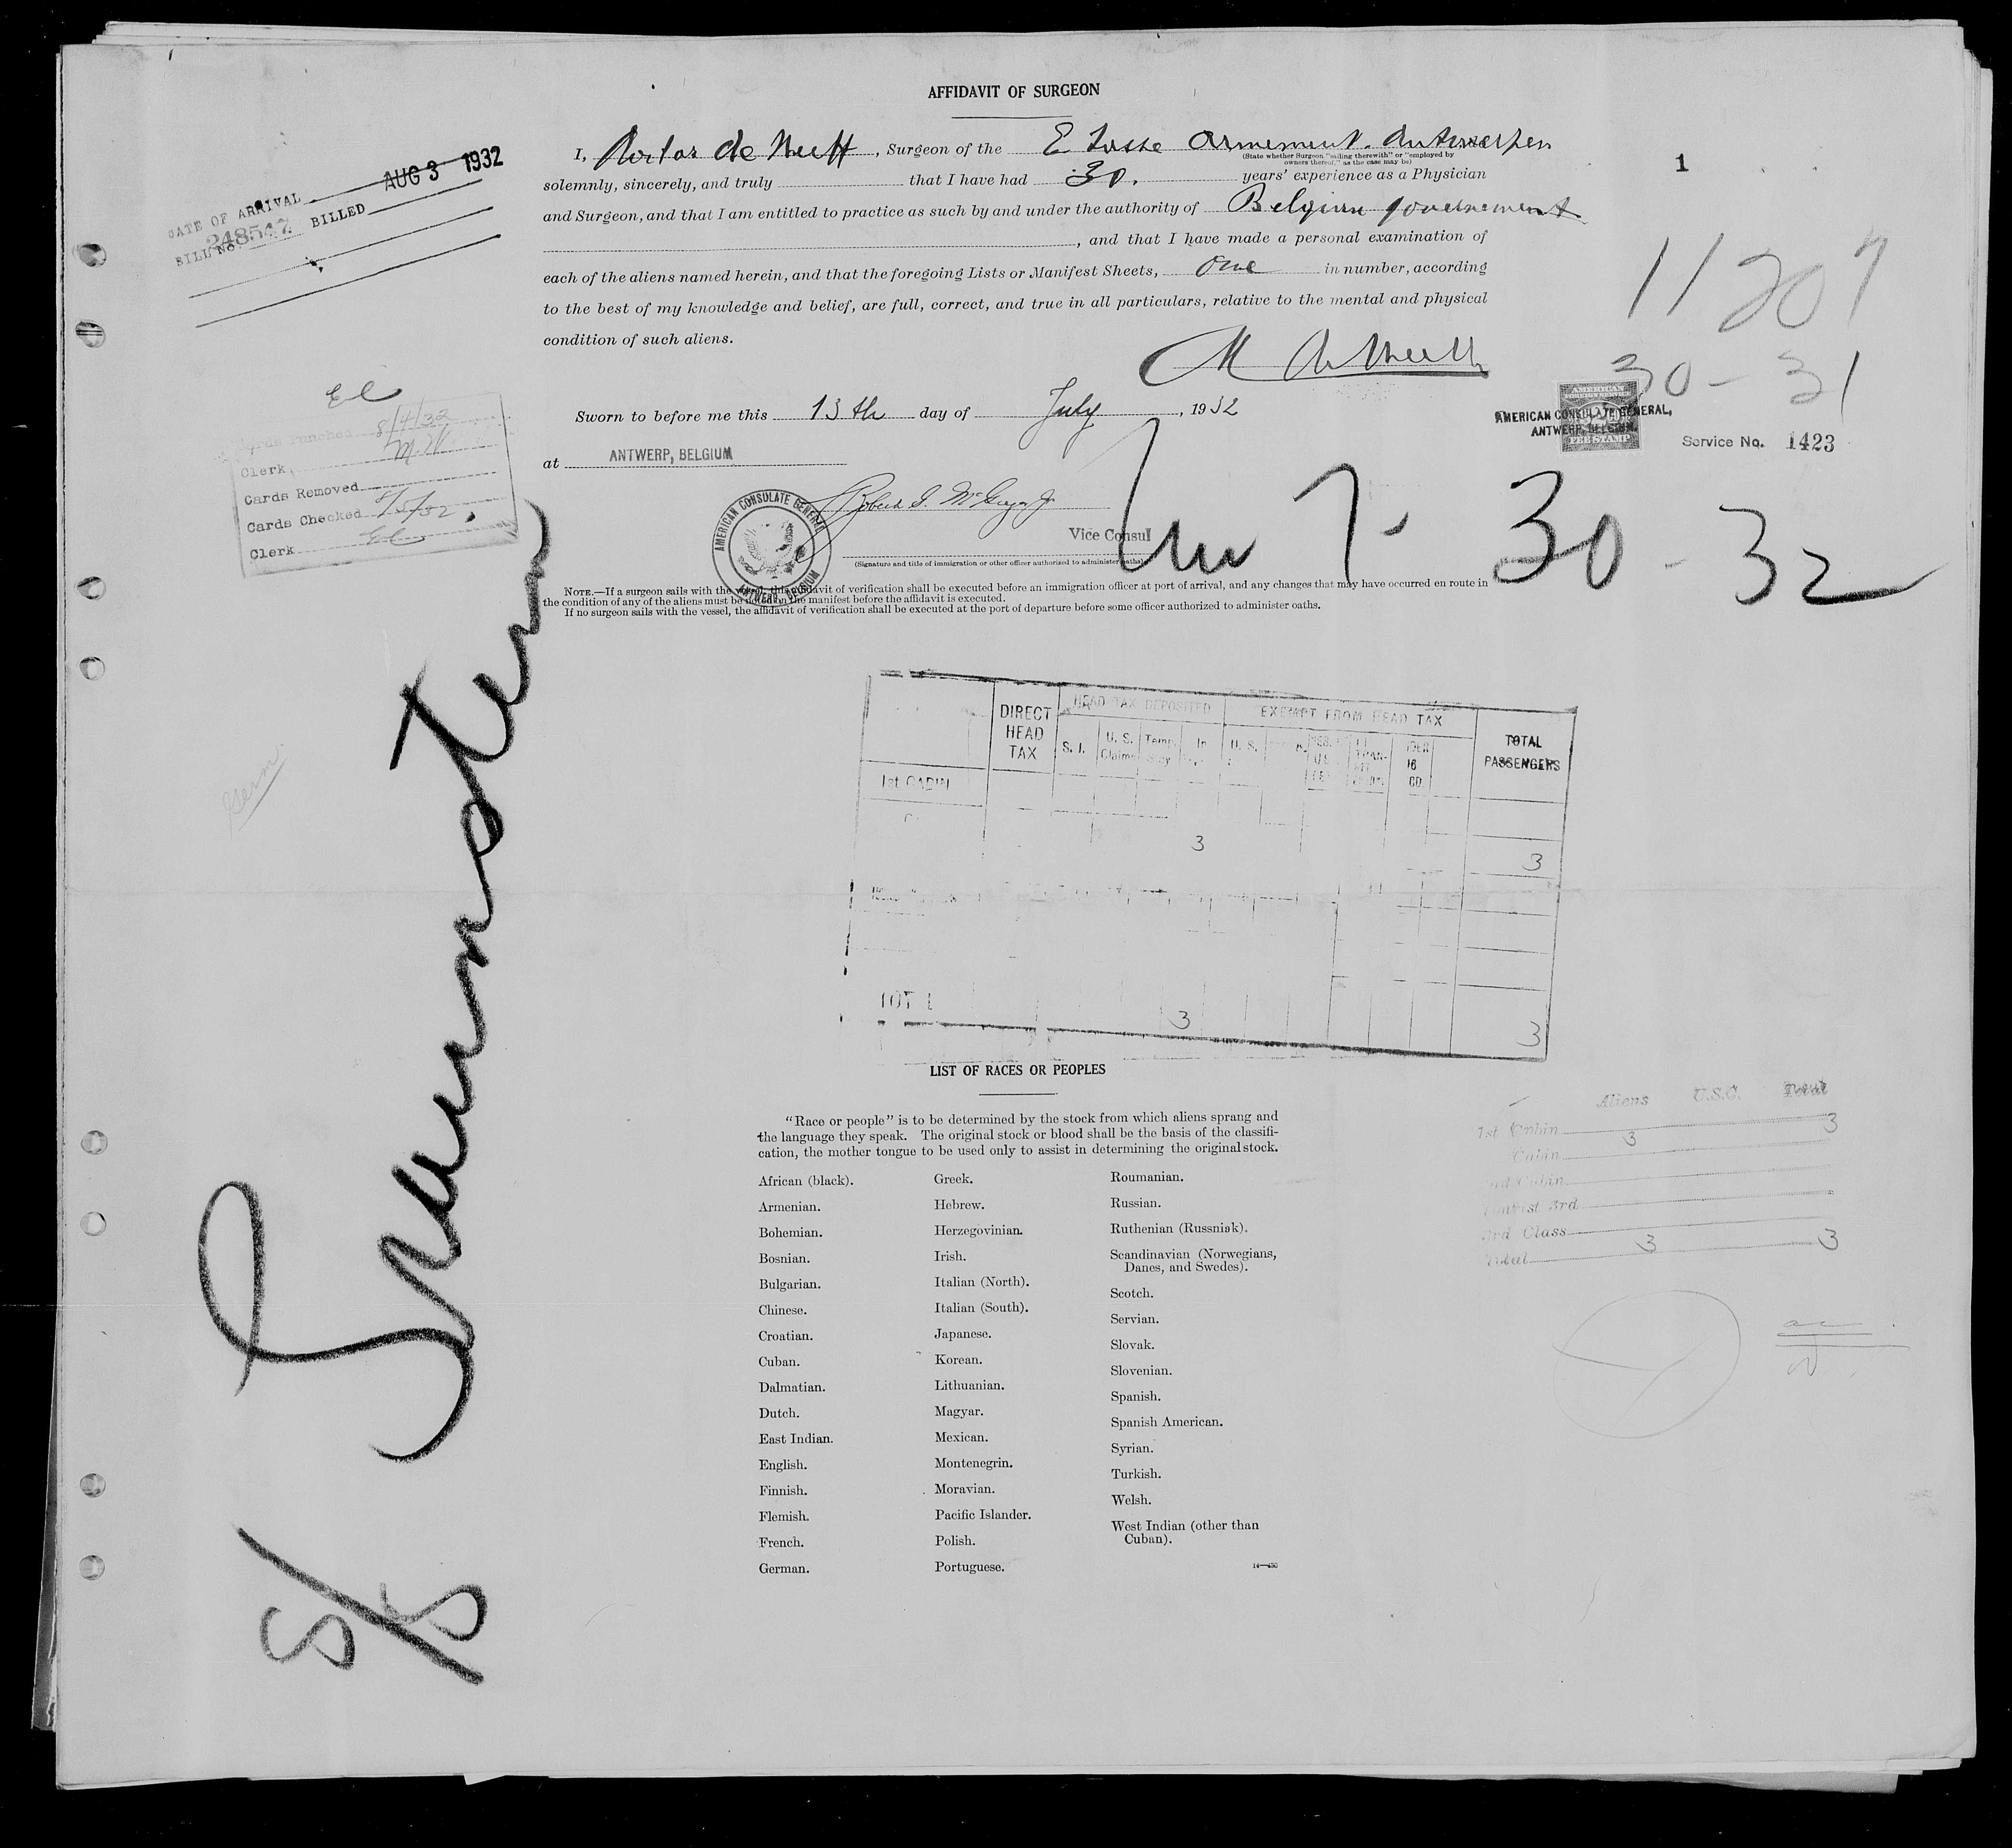 AFFIDAVIT OF SURGEON
I, de Neeff, Surgeon of the Armement. Antwerpen
(State whether Surgeon "sailing therewith" or "employed by
owners thereof," as the case may be)
solemnly, sincerely, and truly that I have had 30. years' experience as a Physician
and Surgeon, and that I am entitled to practice as such by and under the authority of Belgian governement
, and that I have made a personal examination of
each of the aliens named herein, and that the foregoing Lists or Manifest Sheets, one in number, according
to the best of my knowledge and belief, are full, correct, and true in all particulars, relative to the mental and physical
condition of such aliens.
Sworn to before me this 13th day of July, 1932
at ANTWERP, BELGIUM
AMERICAN CONSULATE GENERAL
ANTWERP, BELGIUM
Vice Consul
(Signature and title of immigration or other officer authorized to administer oaths)
NOTE.—If a surgeon sails with the vessel, this affidavit of verification shall be executed before an immigration officer at port of arrival, and any changes that may have occurred en route in
the condition of any of the aliens must be noted on the manifest before the affidavit is executed.
If no surgeon sails with the vessel, the affidavit of verification shall be executed at the port of departure before some officer authorized to administer oaths.
AUG 3 1932
DATE OF ARRIVAL
BILL No. 248547 BILLED
El
Cards Punched 8/4/32
Clerk
Cards Removed
Cards Checked 8/5/32
Clerk El
1
11207
30-31
AMERICAN
FOREIGN SERVICE
FEE STAMP
AMERICAN CONSULATE GENERAL,
ANTWERP, BELGIUM.
Service No. 1423
7-30-32
Germ
DIRECT HEAD TAX
HEAD TAX DEPOSITED
EXEMPT FROM HEAD TAX
TOTAL PASSENGERS
S. I.
U. S. Claims
In
U. S.
1st CABIN
3 3
3 3
LIST OF RACES OR PEOPLES
"Race or people" is to be determined by the stock from which aliens sprang and
the language they speak. The original stock or blood shall be the basis of the classifi-
cation, the mother tongue to be used only to assist in determining the original stock.
African (black).
Armenian.
Bohemian.
Bosnian.
Bulgarian.
Chinese.
Croatian.
Cuban.
Dalmatian.
Dutch.
East Indian.
English.
Finnish.
Flemish.
French.
German.
Greek.
Hebrew.
Herzegovinian.
Irish.
Italian (North).
Italian (South).
Japanese.
Korean.
Lithuanian.
Magyar.
Mexican.
Montenegrin.
Moravian.
Pacific Islander.
Polish.
Portuguese.
Roumanian.
Russian.
Ruthenian (Russniak).
Scandinavian (Norwegians,
Danes, and Swedes).
Scotch.
Servian.
Slovak.
Slovenian.
Spanish.
Spanish American.
Syrian.
Turkish.
Welsh.
West Indian (other than
Cuban).
14—430
Aliens U.S.C. Total
1st Cabin 3 3
Cabin
2nd Cabin
Tourist 3rd
3rd Class
Total 3 3